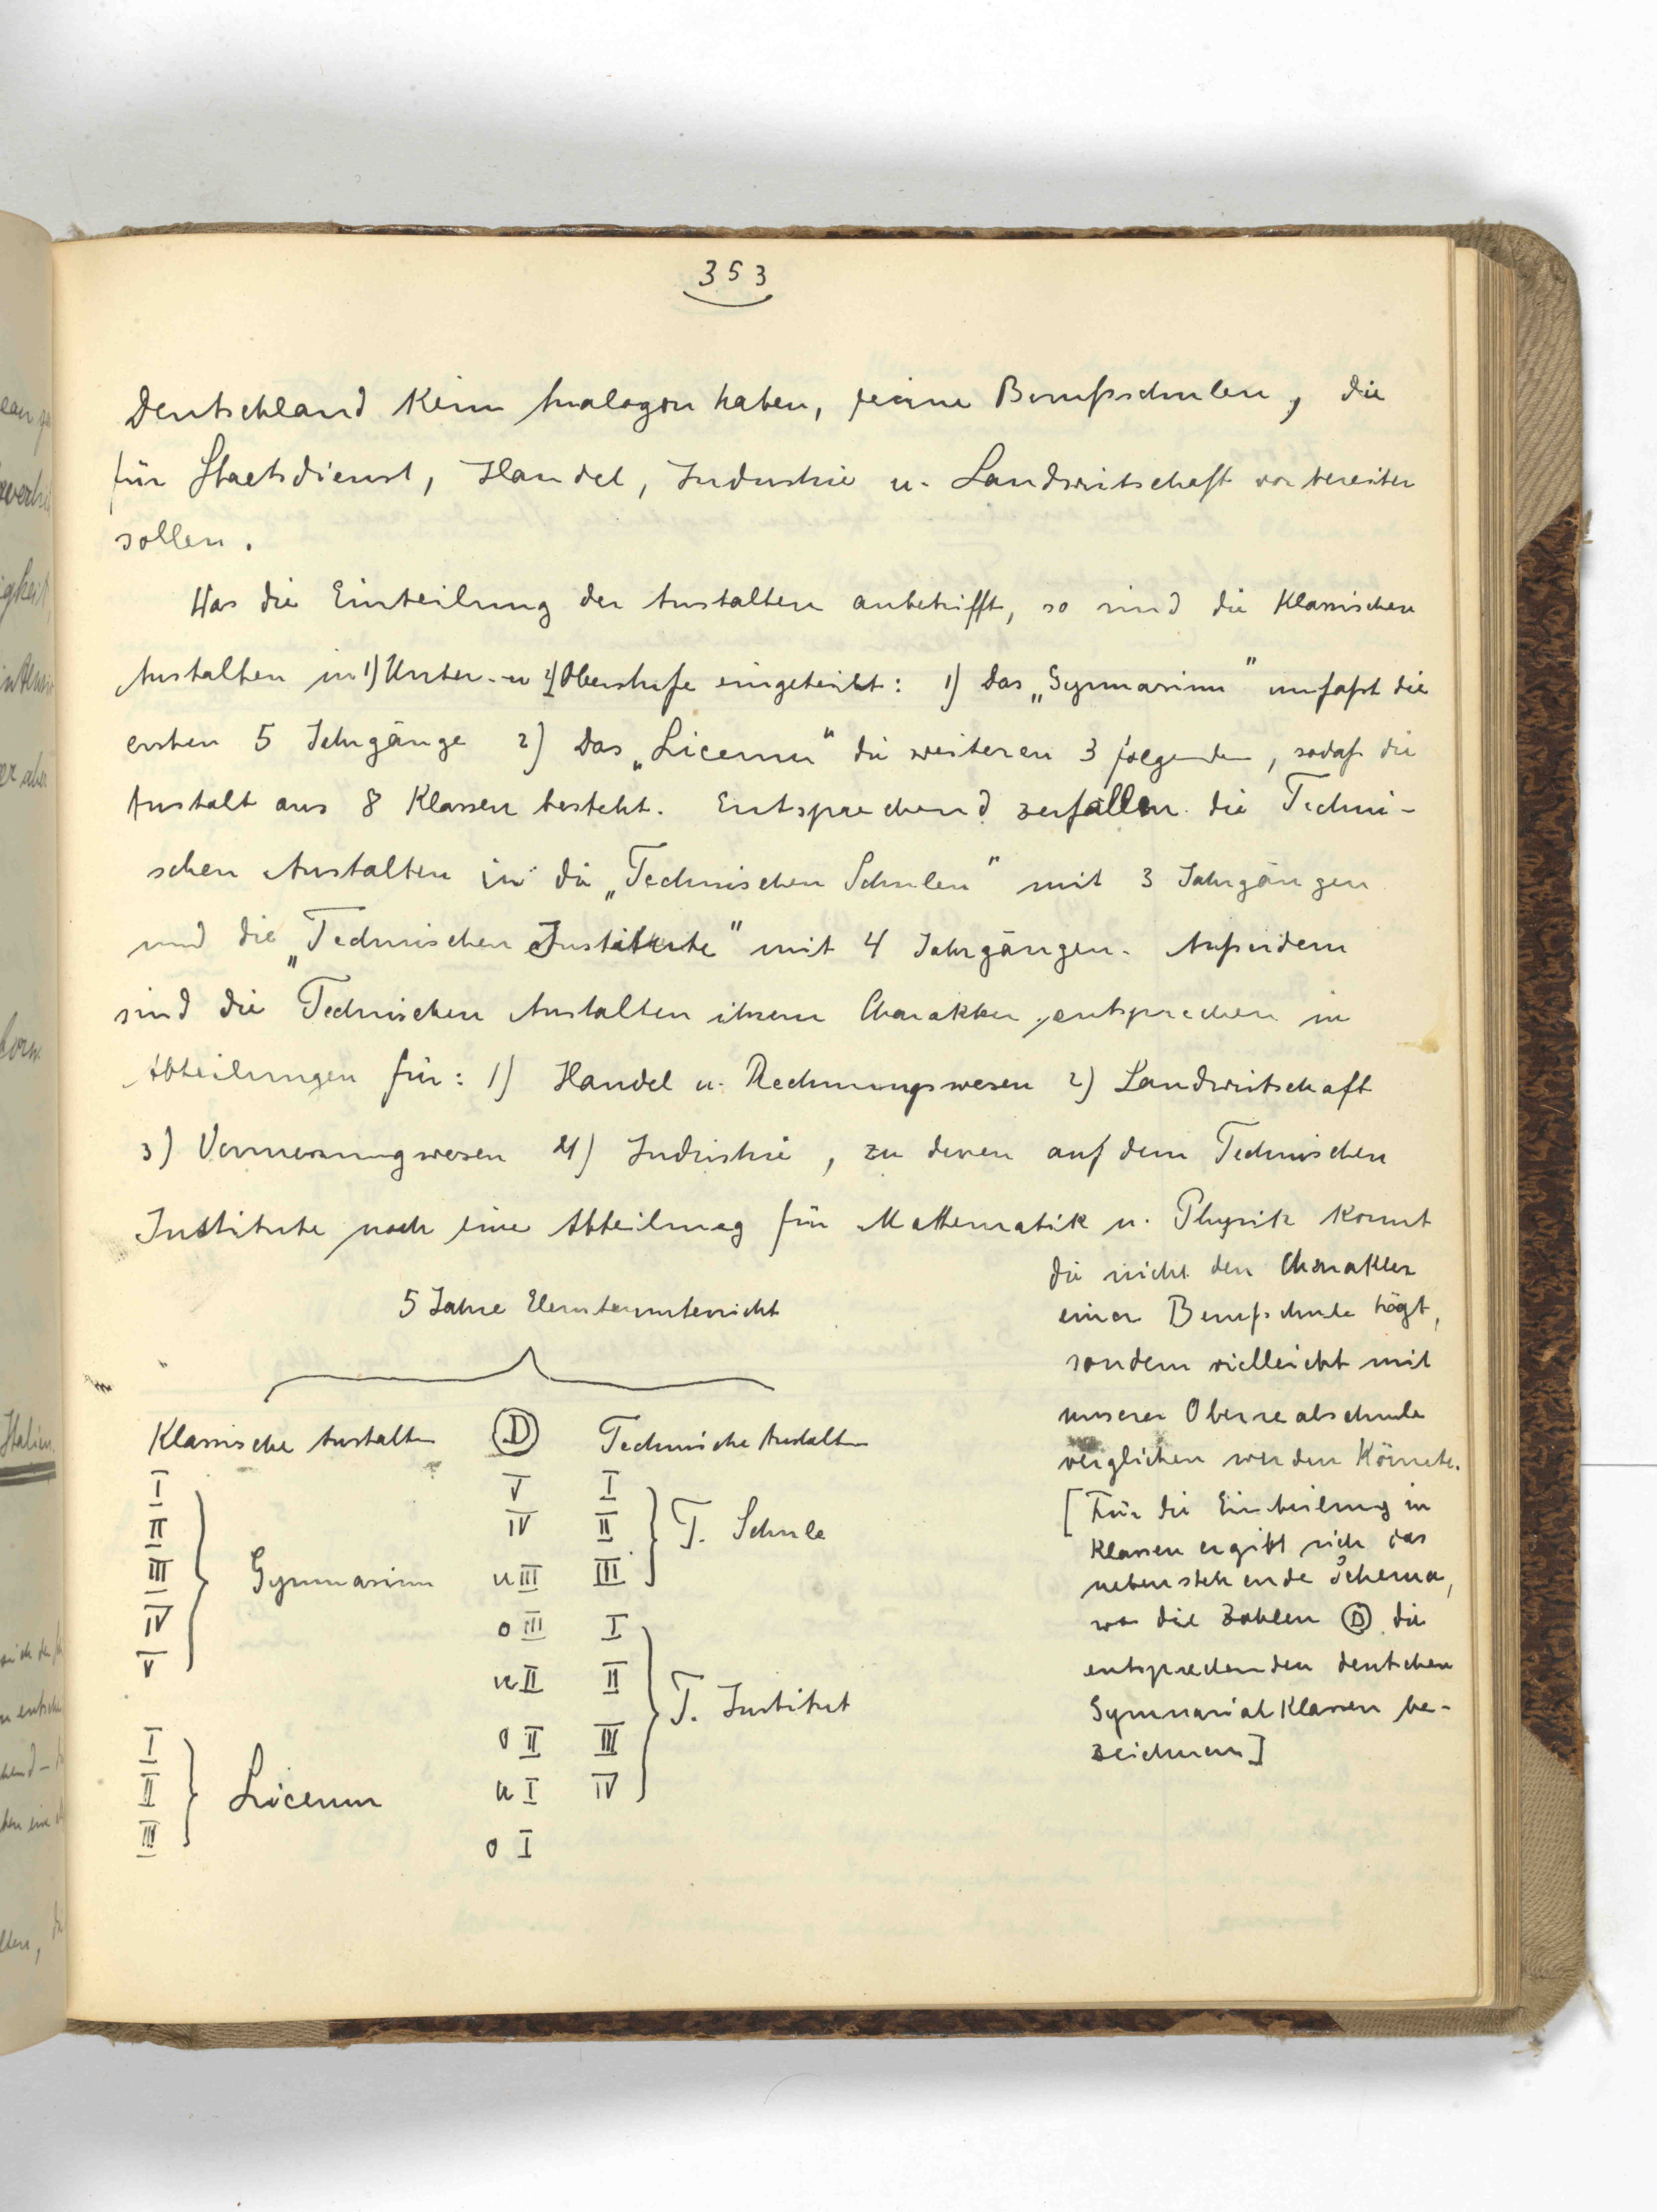 353
Deutschland kein Analogon haben, reine Berufsschulen, die
für Staatsdienst, Handel, Industrie u. Landwirtschaft vorbereiten
sollen.
Was die Einteilung der Anstalten anbetrifft, so sind die Klassischen
Anstalten in 1) Unter- u 2) Oberstufe eingeteilt: 1) Das „Gymnasium" umfaßt die
ersten 5 Jahrgänge 2) Das „Liceum" die weiteren 3 folgenden, sodaß die
Anstalt aus 8 Klassen besteht. Entsprechend zerfallen die Techni-
schen Anstalten in die „Technischen Schulen" mit 3 Jahrgängen
und die „Technischen Institute" mit 4 Jahrgängen. Außerdem
sind die Technischen Anstalten ihrem Charakter entsprechen in
Abteilungen für: 1) Handel u. Rechnungswesen 2) Landwirtschaft
3) Vermessungwesen 4) Industrie, zu denen auf dem Technischen
Institute noch eine Abteilung für Mathematik u. Physik kommt
die nicht den Charakter
einer Berufschule trägt,
sondern vielleicht mit
unserer Oberrealschule
verglichen werden könnte.
[Für die Einteilung in
Klassen ergibt sich das
nebenstehende Schema,
wo die Zahlen D die
entsprechenden deutschen
Gymnasialklassen be-
zeichnen]
5 Jahre Elementarunterricht
Klassische Anstalten D Technische Anstalten
I V I
II IV II T. Schule
III Gymnasium u III III
IV o III I
V u II II T. Institut
I o II III
II Liceum u I IV
III o I